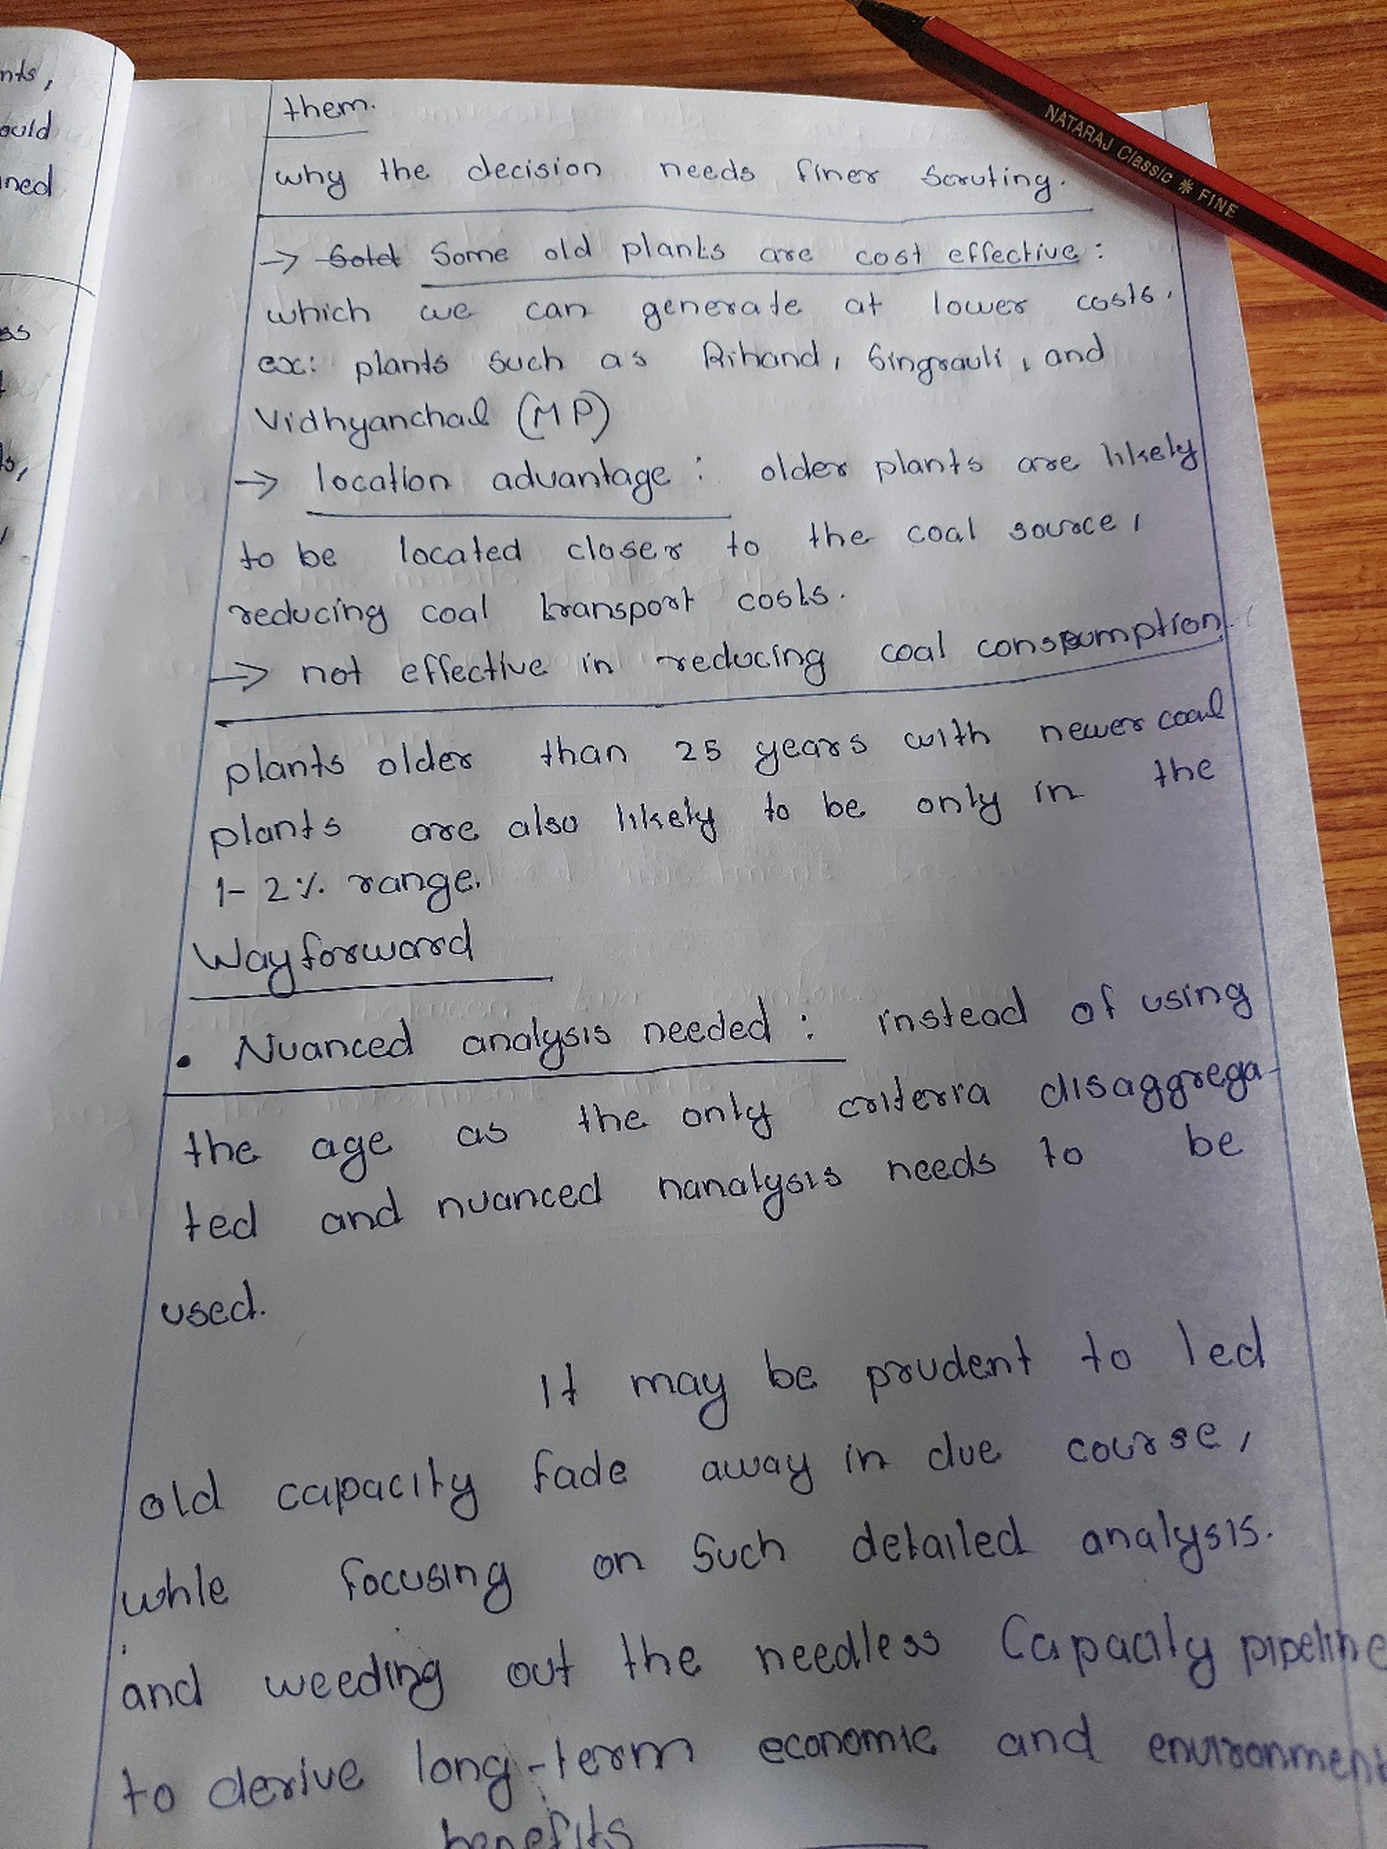 nts,
ould
ined
ss
them.
why the decision needs finer scruting.
→ Some old plants are cost effective:
which we can generate at lower costs.
ex: plants such as Rihand, Singrauli, and
Vidhyanchal (MP)
→ location advantage: older plants are likely
to be located closer to the coal source,
reducing coal transport costs.
→ not effective in reducing coal consumption
plants older than 25 years with newer coal
plants are also likely to be only in the
1-2% range.
Way forward
• Nuanced analysis needed: instead of using
the age as the only criteria disaggrega-
ted and nuanced nanalysis needs to be
used.
It may be prudent to led
old capacity fade away in due course,
while focusing on such detailed analysis.
and weeding out the needless capacity pipeline
to derive long-term economic and environment
benefits
NATARAJ Classic ✷ FINE